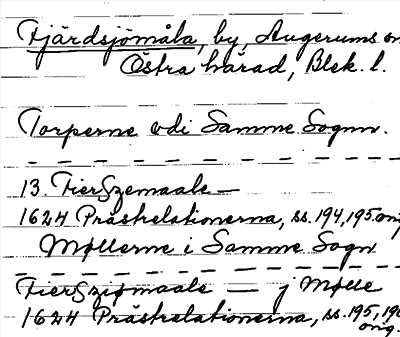 Fjärdsjömåla, by, Augerums
Östra härad, Blek. l.
Torperne udi Samme Sognn.
13. Fierszemaale —
1624 Prästrelationerna, ss. 194, 195 orig
Møllerne i Samme Sogn
Fiersziømaale — j Mølle
1624 Prästrelationerna, ss. 195, 196
orig.